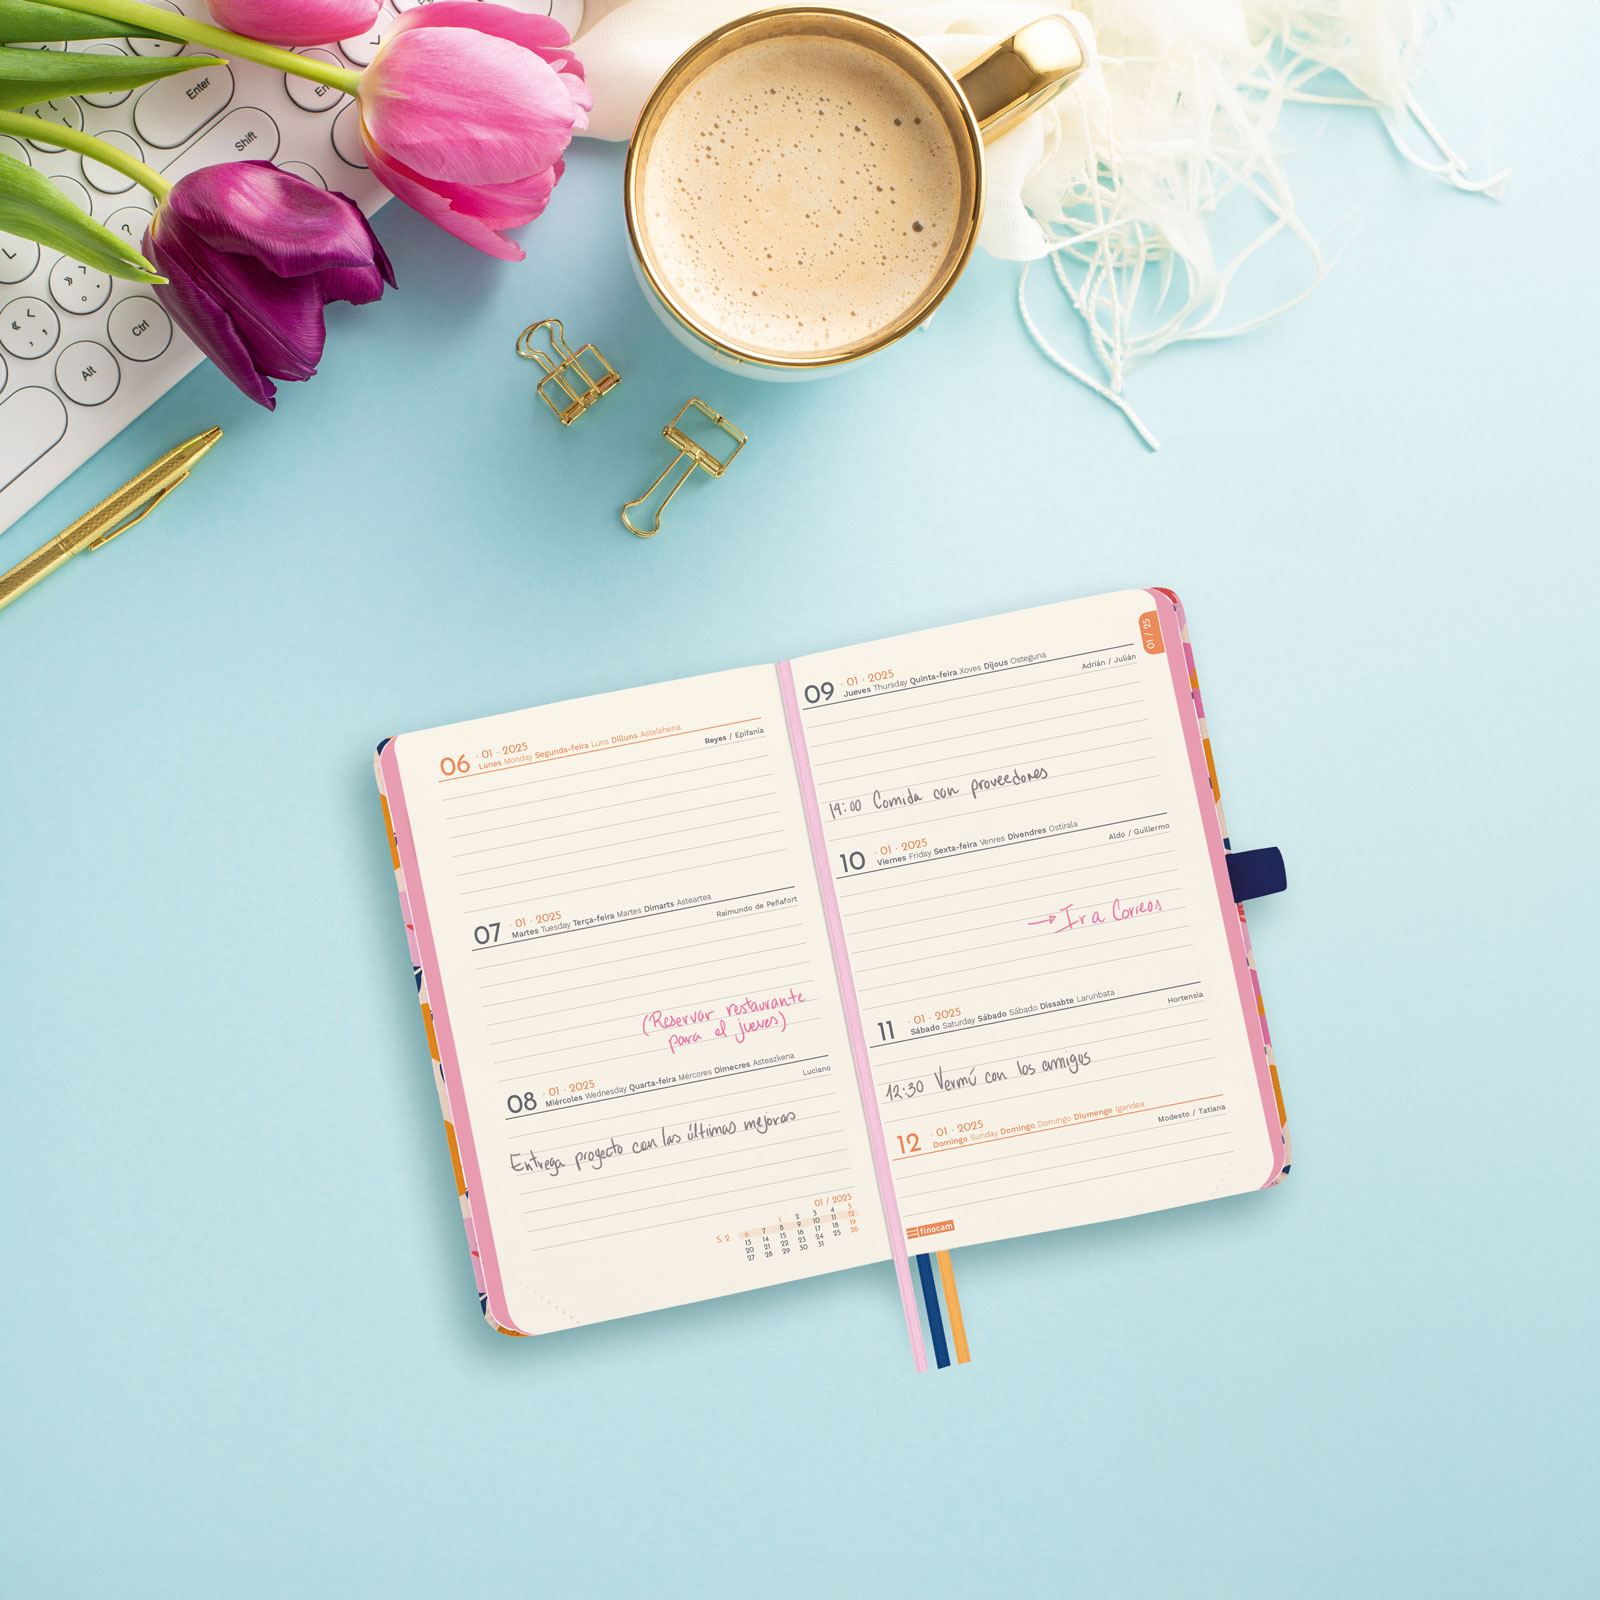 Enter
Shift
Alt
Ctrl
06 · 01 · 2025
Lunes Monday Segunda-feira Luns Dilluns Astelehena
Reyes / Epifanía
07 · 01 · 2025
Martes Tuesday Terça-feira Martes Dimarts Asteartea
Raimundo de Peñafort
(Reservar restaurante
para el jueves)
08 · 01 · 2025
Miércoles Wednesday Quarta-feira Mércores Dimecres Asteazkena
Luciano
Entrega proyecto con las últimas mejoras
01 / 2025
1 2 3 4 5
S. 2 6 7 8 9 10 11 12
13 14 15 16 17 18 19
20 21 22 23 24 25 26
27 28 29 30 31
01 / 25
09 · 01 · 2025
Jueves Thursday Quinta-feira Xoves Dijous Osteguna
Adrián / Julián
14:00 Comida con proveedores
10 · 01 · 2025
Viernes Friday Sexta-feira Venres Divendres Ostirala
Aldo / Guillermo
→ Ir a Correos
11 · 01 · 2025
Sábado Saturday Sábado Sábado Dissabte Larunbata
Hortensia
12:30 Vermú con los amigos
12 · 01 · 2025
Domingo Sunday Domingo Domingo Diumenge Igandea
Modesto / Tatiana
finocam